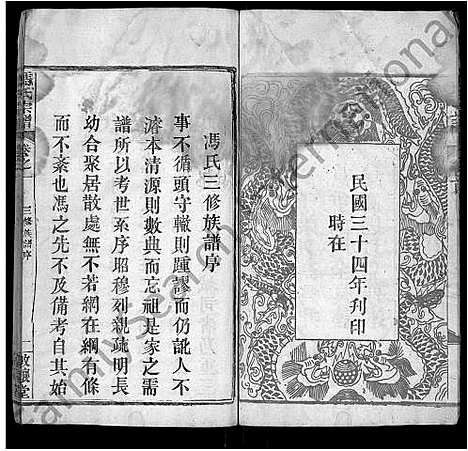 時在
民國三十四年刋印
馮氏三修族譜序
事不循頭守轍則踵謬而仍訛人不
濬本清源則數典而忘祖是家之需
譜所以考世系序昭穆列親疏明長
幼合聚居散處無不若網在綱有條
而不紊也馮之先不及備考自其始
三修族譜序